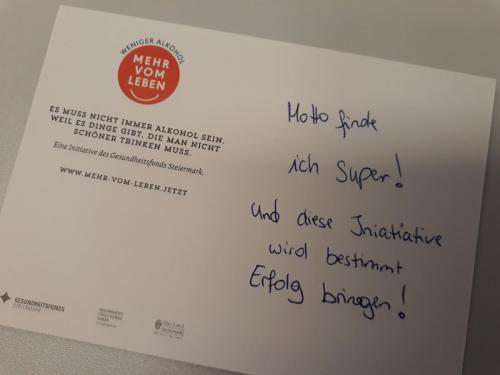 WENIGER ALKOHOL
MEHR
VOM
LEBEN
ES MUSS NICHT IMMER ALKOHOL SEIN.
WEIL ES DINGE GIBT, DIE MAN NICHT
SCHÖNER TRINKEN MUSS.
Eine Initiative des Gesundheitsfonds Steiermark.
WWW.MEHR-VOM-LEBEN.JETZT
Motto finde
ich Super!
Und diese Iniatiative
wird bestimmt
Erfolg bringen!
GESUNDHEITSFONDS
STEIERMARK
Das Land
Steiermark